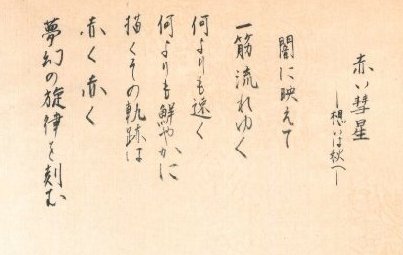 赤い彗星
―想いは秋へ―
闇に映えて
一筋流れゆく
何よりも速く
何よりも鮮やかに
描くその軌跡は
赤く赤く
夢幻の旋律を刻む